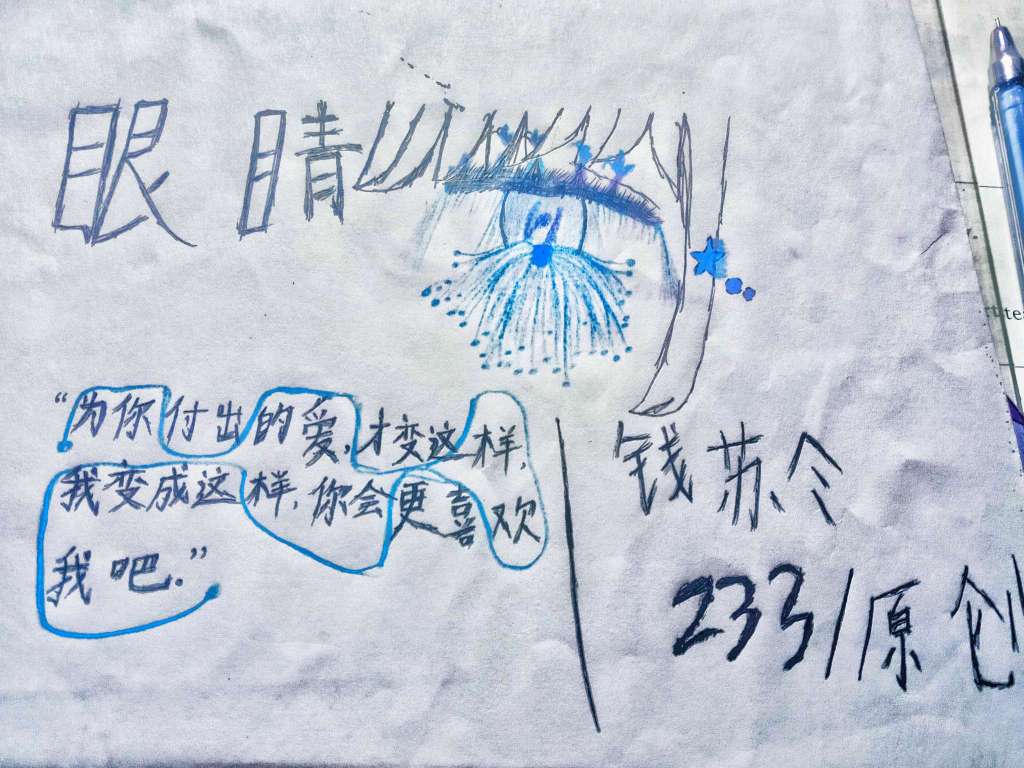 眼睛
“为你付出的爱,才变这样,
我变成这样,你会更喜欢
我吧.”
钱苏令
233/原创